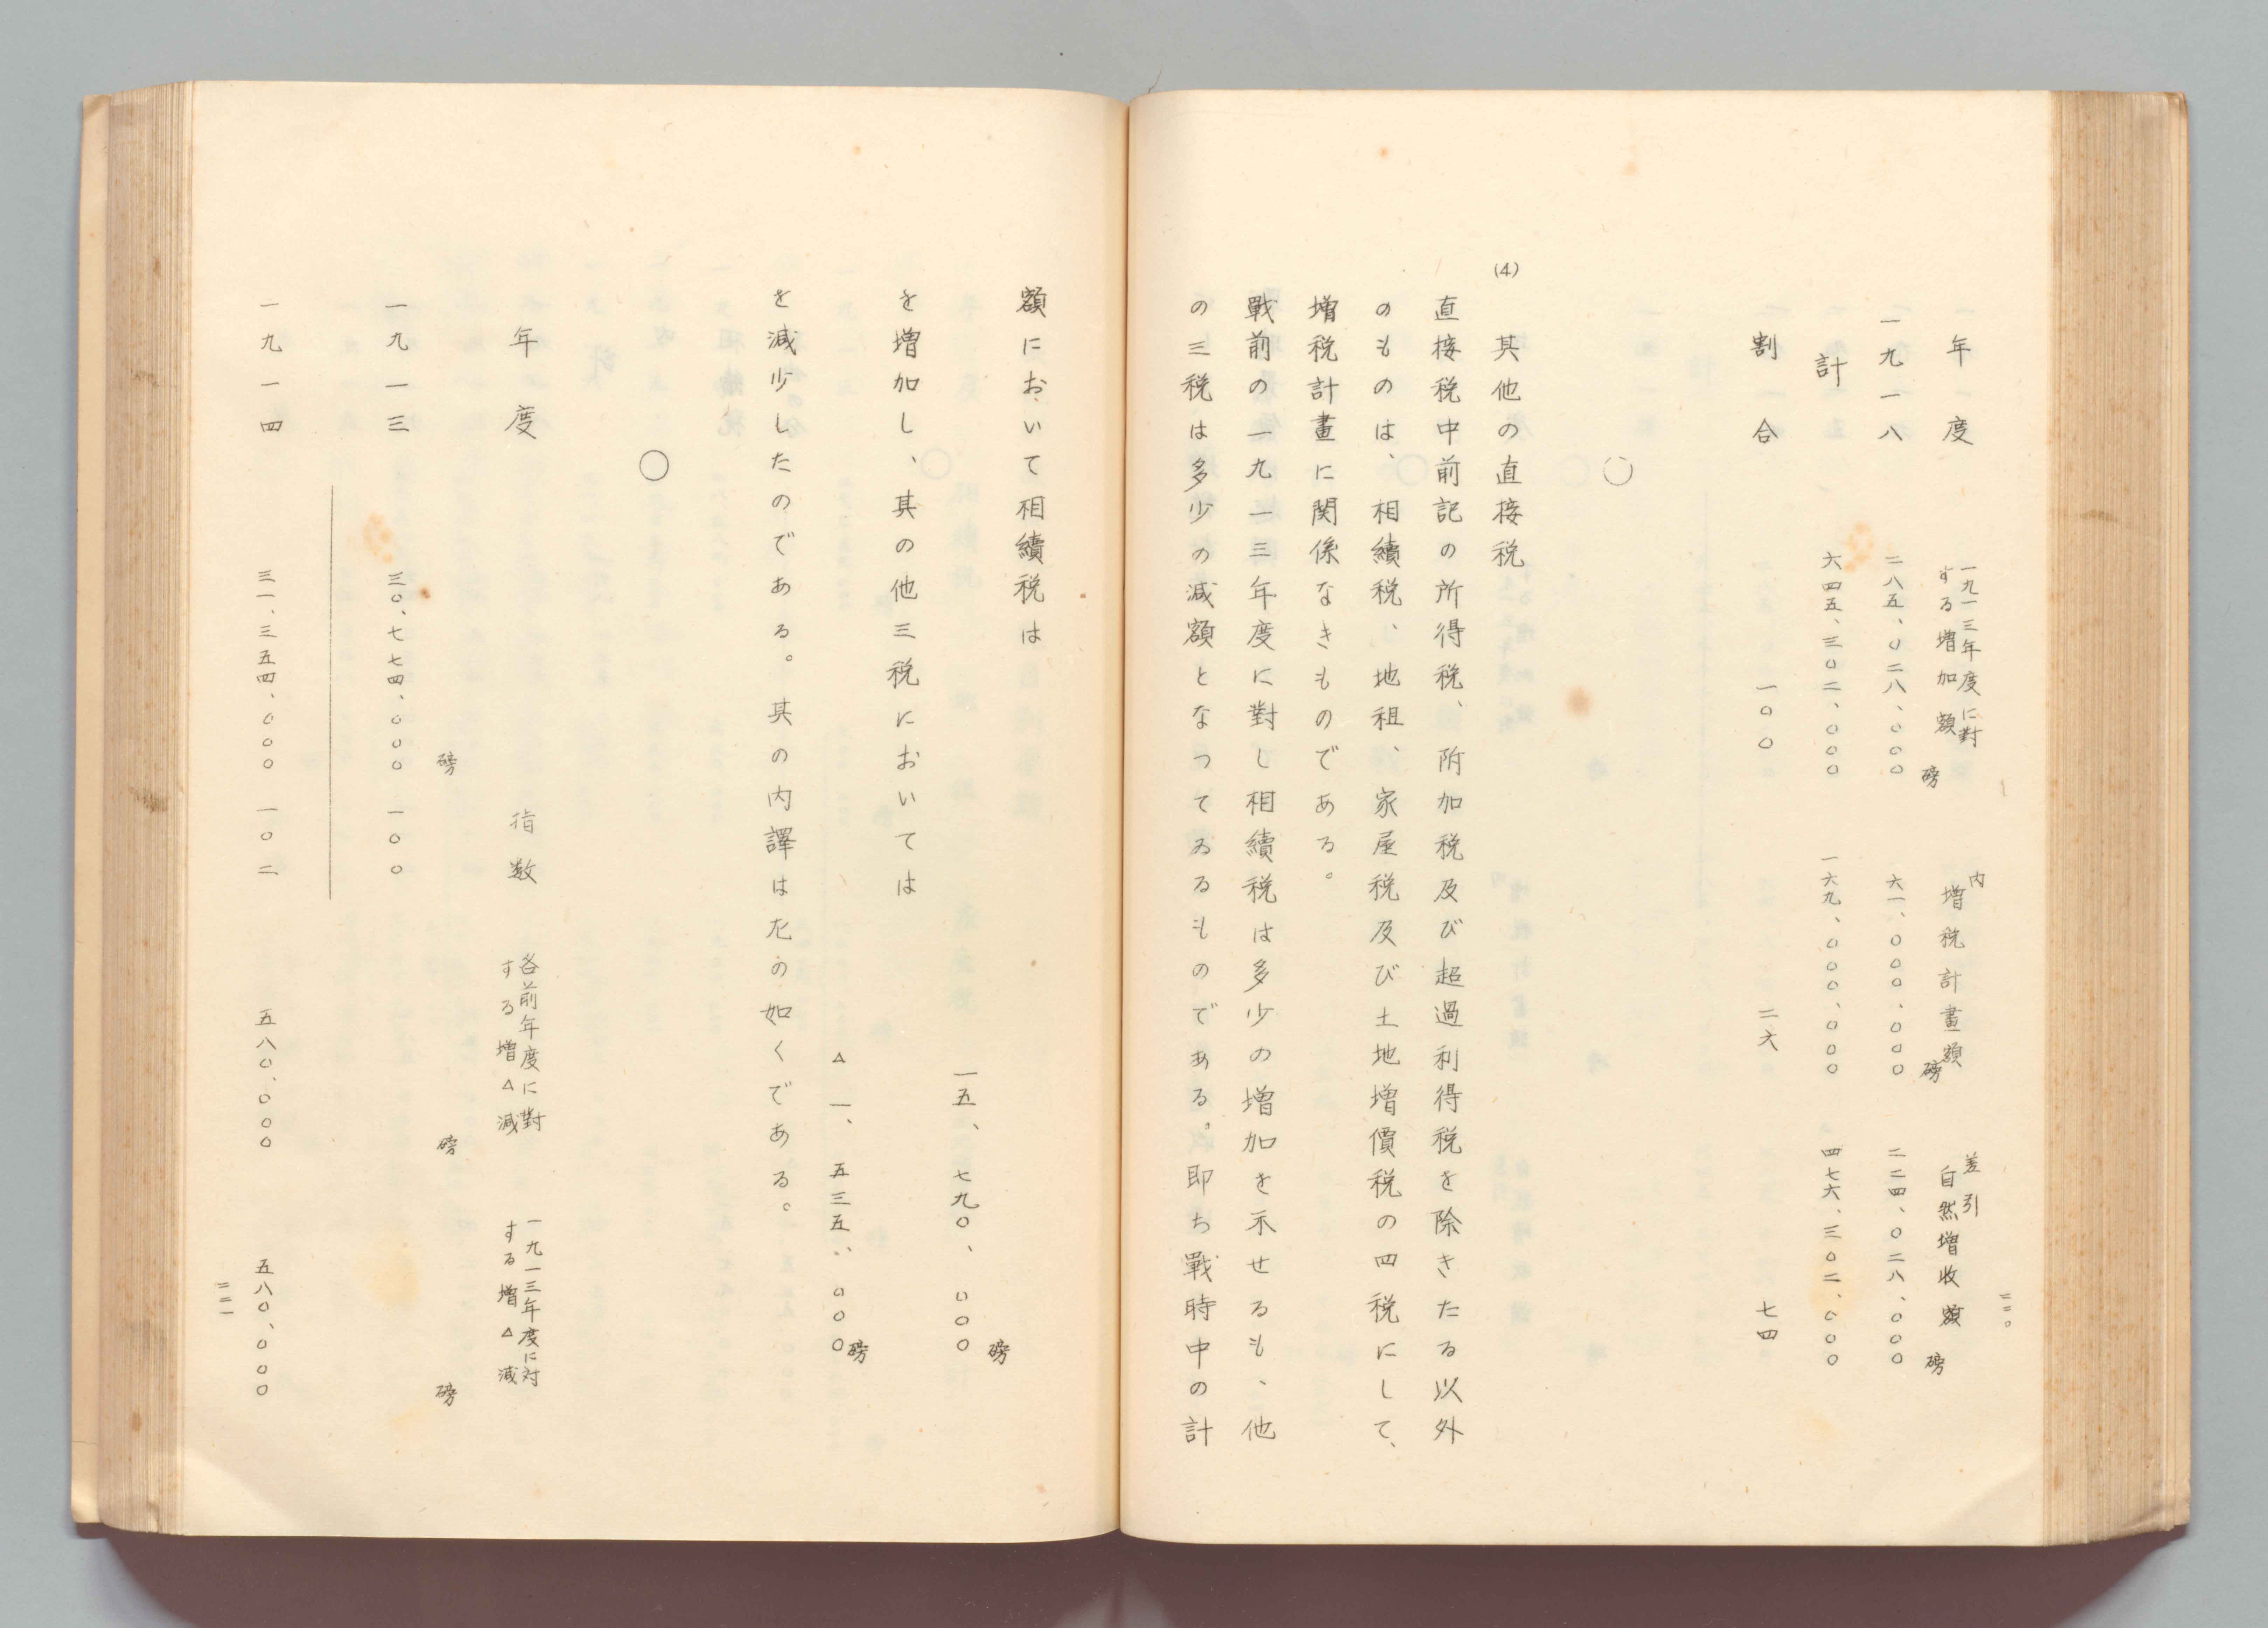 二二〇
年度　一九一三年度に對する増加額　内増税計畫額　差引自然増收額
磅　磅　磅
一九一八　二八五、〇二八、〇〇〇　六一、〇〇〇、〇〇〇　二二四、〇二八、〇〇〇
計　六四五、三〇二、〇〇〇　一六九、〇〇〇、〇〇〇　四七六、三〇二、〇〇〇
割合　一〇〇　二六　七四
〇
(4)　其他の直接税
直接税中前記の所得税、附加税及び超過利得税を除きたる以外
のものは、相續税、地租、家屋税及び土地増價税の四税にして、
増税計畫に関係なきものである。
戰前の一九一三年度に對し相續税は多少の増加を示せるも、他
の三税は多少の減額となつてゐるものである。即ち戰時中の計
額において相續税は
磅
一五、七九〇、〇〇〇
を増加し、其の他三税においては
磅
△一、五三五、〇〇〇
を減少したのである。其の内譯は左の如くである。
〇
年度　指数　各前年度に對する増△減　一九一三年度に対する増△減
磅　磅　磅
一九一三　三〇、七七四、〇〇〇　一〇〇
一九一四　三一、三五四、〇〇〇　一〇二　五八〇、〇〇〇　五八〇、〇〇〇
二二一